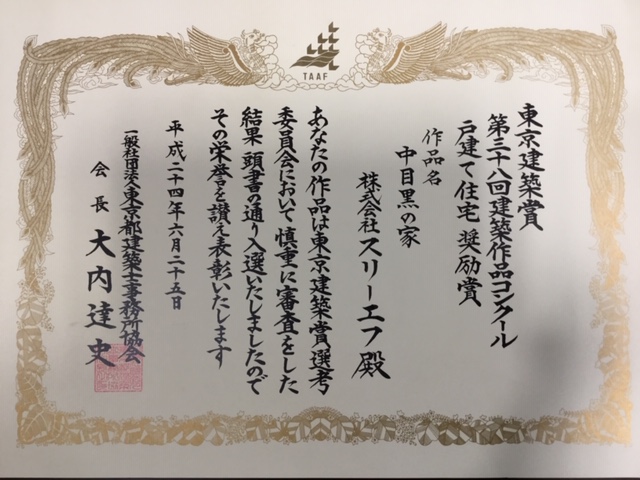 TAAF
東京建築賞
第三十八回建築作品コンクール
戸建て住宅 奨励賞
作品名
中目黒の家
株式会社 スリーエフ 殿
あなたの作品は東京建築賞選考
委員会において 慎重に審査をした
結果 頭書の通り入選いたしましたので
その栄誉を讃え表彰いたします
平成二十四年六月二十五日
一般社団法人東京都建築士事務所協会
会長 大内達史